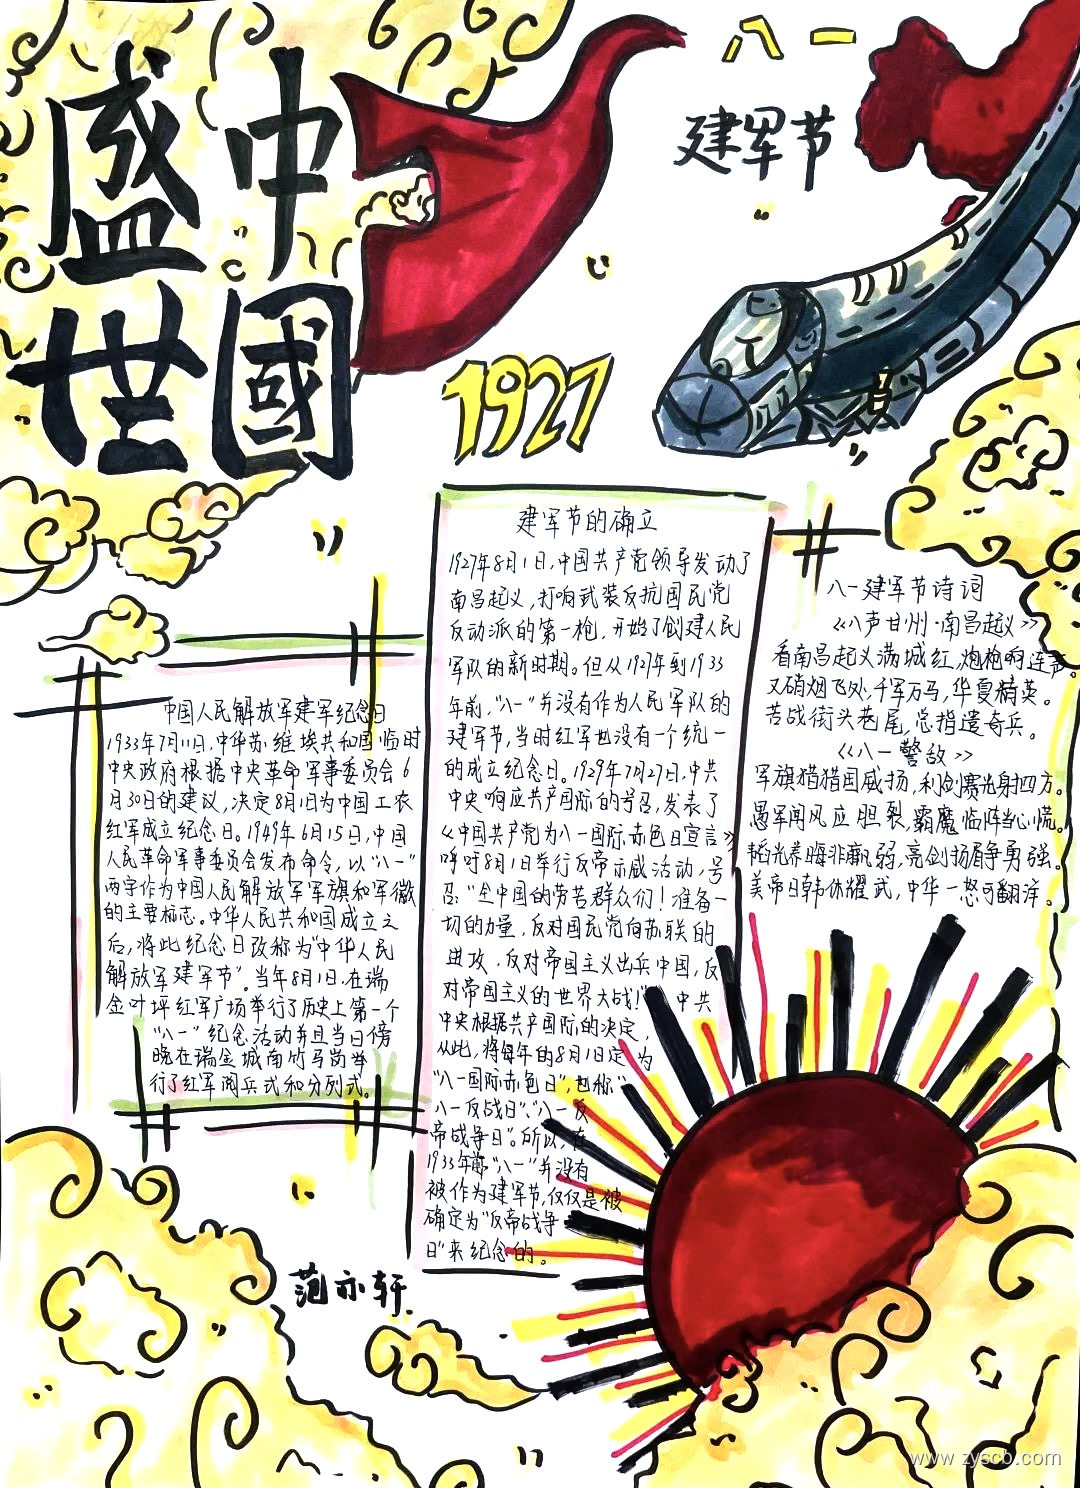 盛世
中國
八一
建军节
1927
中国人民解放军建军纪念日
1933年7月11日,中华苏维埃共和国临时
中央政府根据中央革命军事委员会6
月30日的建议,决定8月1日为中国工农
红军成立纪念日。1949年6月15日,中国
人民革命军事委员会发布命令,以"八一"
两字作为中国人民解放军军旗和军徽
的主要标志。中华人民共和国成立之
后,将此纪念日改称为"中华人民
解放军建军节"。当年8月1日,在瑞
金叶坪红军广场举行了历史上第一个
"八一"纪念活动并且当日傍
晚在瑞金城南竹马岗举
行了红军阅兵式和分列式。
建军节的确立
1927年8月1日,中国共产党领导发动了
南昌起义,打响武装反抗国民党
反动派的第一枪,开始了创建人民
军队的新时期。但从1927年到1933
年前,"八一"并没有作为人民军队的
建军节,当时红军也没有一个统一
的成立纪念日。1929年7月27日,中共
中央响应共产国际的号召,发表了
《中国共产党为八一国际赤色日宣言》
呼吁8月1日举行反帝示威活动,号
召:"全中国的劳苦群众们!准备一
切的力量,反对国民党向苏联的
进攻,反对帝国主义出兵中国,反
对帝国主义的世界大战!"中共
中央根据共产国际的决定,
从此,将每年的8月1日定为
"八一国际赤色日",也称"
八一反战日"、"八一反
帝战争日"。所以,在
1933年前"八一"并没有
被作为建军节,仅仅是被
确定为"反帝战争
日"来纪念的。
八一建军节诗词
《八声甘州·南昌起义》
看南昌起义满城红,炮枪响连声。
又硝烟飞处,千军万马,华夏精英。
苦战街头巷尾,总指遣奇兵。
《八一警敌》
军旗猎猎国威扬,利剑赛光射四方。
愚军闻风应胆裂,霸魔临阵当心慌。
韬光养晦非羸弱,亮剑扬眉争勇强。
美帝日韩休耀武,中华一怒可翻洋。
范亦轩
www.zyscb.com